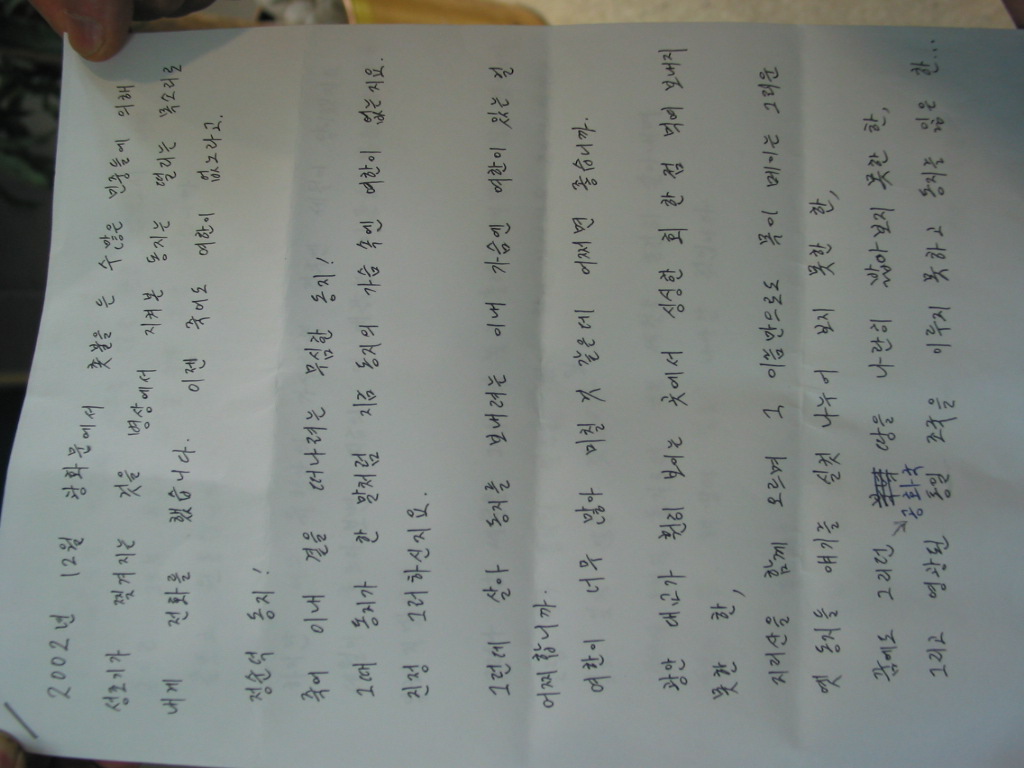 2002년 12월 광화문에서 촛불을 든 수많은 민중들에 의해
성조기가 찢겨지는 것을 병상에서 지켜본 동지는 떨리는 목소리로
내게 전화를 했습니다. 이젠 죽어도 여한이 없노라고.
정순덕 동지!
죽어 이내 곁을 떠나려는 무심한 동지!
그대 동지가 한 말처럼 지금 동지의 가슴 속엔 여한이 없는지요.
진정 그러하신지요.
그런데 살아 동지를 보내려는 이내 가슴엔 여한이 있는 걸
어찌합니까.
여한이 너무 많아 미칠 것 같은데 어쩌면 좋습니까.
광안 대교가 훤히 보이는 곳에서 싱싱한 회 한 점 먹여 보내지
못한 한,
지리산을 함께 오르며 그 이름만으로도 목이 메이는 그리운
옛 동지들 얘기를 실컷 나누어 보지 못한 한,
꿈에도 그리던 공화국 땅을 나란히 밟아보지 못한 한,
그리고 영광된 통일 조국을 이루지 못하고 동지를 잃은 한...